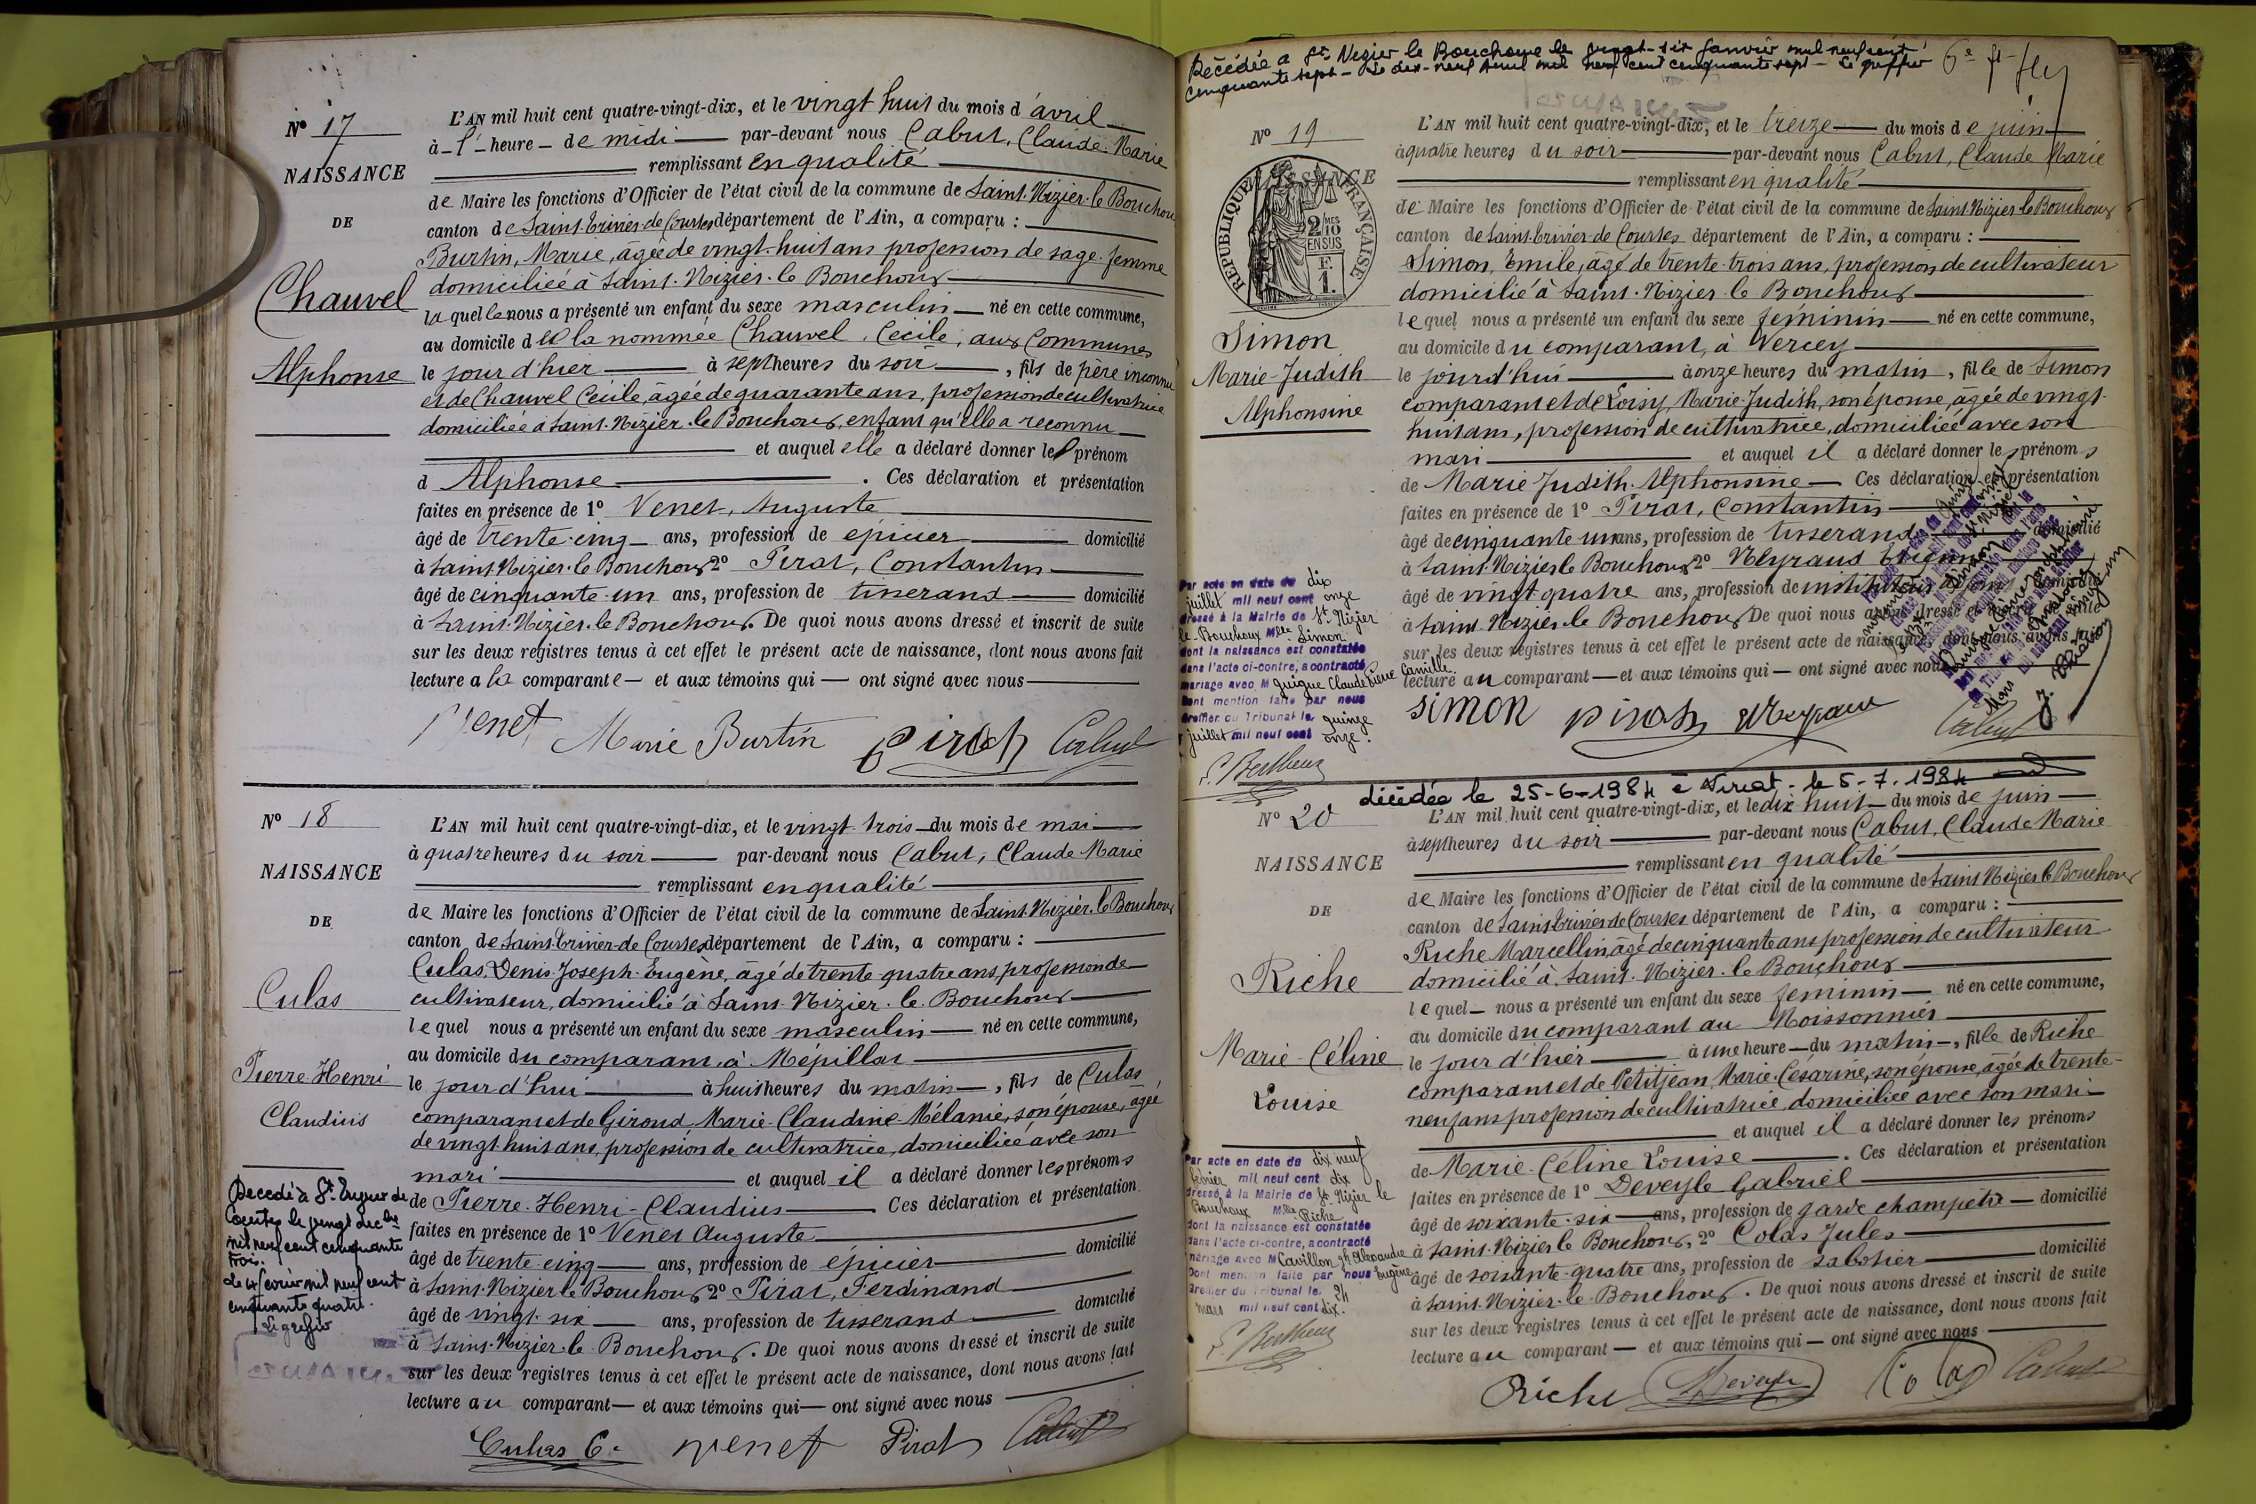 N° 17
NAISSANCE
DE
Chauvel
Alphonse
L'AN mil huit cent quatre-vingt-dix, et le vingt huit du mois d'avril
à l' heure de midi par-devant nous Cabut, Claude Marie
remplissant en qualité
de Maire les fonctions d'Officier de l'état civil de la commune de Saint-Nizier-le Bouchoux
canton de Saint-Trivier-de Courtes département de l'Ain, a comparu :
Burtin, Marie, âgée de vingt-huit ans profession de sage-femme
domiciliée à Saint-Nizier-le Bouchoux
laquelle nous a présenté un enfant du sexe masculin né en cette commune,
au domicile de la nommée Chauvel, Cécile, aux Communes
le jour d'hier à sept heures du soir, fils de père inconnu
et de Chauvel Cécile, âgée de quarante ans, profession de cultivatrice
domiciliée à Saint-Nizier-le Bouchoux, enfant qu'elle a reconnu
et auquel elle a déclaré donner le prénom
d Alphonse. Ces déclaration et présentation
faites en présence de 1° Venet, Auguste
âgé de trente-cinq ans, profession de épicier domicilié
à Saint-Nizier-le Bouchoux 2° Pirat, Constantin
âgé de cinquante-un ans, profession de tisserand domicilié
à Saint-Nizier-le Bouchoux. De quoi nous avons dressé et inscrit de suite
sur les deux registres tenus à cet effet le présent acte de naissance, dont nous avons fait
lecture a la comparante et aux témoins qui ont signé avec nous
Venet Marie Burtin Pirat Cabut
N° 18
NAISSANCE
DE
Culas
Pierre-Henri
Claudius
Décédé à St Trivier de
Courtes le vingt décbre
mil neuf cent cinquante
trois.
Le février mil neuf cent
cinquante quatre.
Le greffier
L'AN mil huit cent quatre-vingt-dix, et le vingt trois du mois de mai
à quatre heures du soir par-devant nous Cabut, Claude Marie
remplissant en qualité
de Maire les fonctions d'Officier de l'état civil de la commune de Saint-Nizier-le Bouchoux
canton de Saint-Trivier-de Courtes département de l'Ain, a comparu :
Culas, Denis-Joseph-Eugène, âgé de trente quatre ans profession de
cultivateur, domicilié à Saint-Nizier-le-Bouchoux
lequel nous a présenté un enfant du sexe masculin né en cette commune,
au domicile du comparant, à Mépillat
le jour d'hui à huit heures du matin, fils de Culas
comparant et de Giroud, Marie-Claudine Mélanie, son épouse, âgée
de vingt huit ans, profession de cultivatrice, domiciliée avec son
mari et auquel il a déclaré donner les prénoms
de Pierre-Henri-Claudius Ces déclaration et présentation
faites en présence de 1° Venet Auguste
âgé de trente-cinq ans, profession de épicier domicilié
à Saint-Nizier le Bouchoux 2° Pirat, Ferdinand
âgé de vingt-six ans, profession de tisserand domicilié
à Saint-Nizier-le Bouchoux. De quoi nous avons dressé et inscrit de suite
sur les deux registres tenus à cet effet le présent acte de naissance, dont nous avons fait
lecture au comparant et aux témoins qui ont signé avec nous
Culas E. Venet Pirat Cabut
Décédée à St Nizier le Bouchoux le vingt-six Janvier mil neuf cent
cinquante sept - Le dix-neuf Avril mil neuf cent cinquante sept - Le greffier
N° 19
NAISSANCE
RÉPUBLIQUE FRANÇAISE
2 MES
2/10
EN SUS
F.
1.
Simon
Marie-Judith
Alphonsine
Par acte en date du dix
juillet mil neuf cent onze
dressé à la Mairie de St Nizier
le Bouchoux Mlle Simon
dont la naissance est constatée
dans l'acte ci-contre, a contracté
mariage avec M Guigue Claude Pierre Camille
Dont mention faite par nous
Greffier du Tribunal le quinze
juillet mil neuf cent onze.
L'AN mil huit cent quatre-vingt-dix, et le treize du mois de juin
à quatre heures du soir par-devant nous Cabut, Claude Marie
remplissant en qualité
de Maire les fonctions d'Officier de l'état civil de la commune de Saint-Nizier-le Bouchoux
canton de Saint-Trivier-de Courtes département de l'Ain, a comparu :
Simon, Emile, âgé de trente-trois ans, profession de cultivateur
domicilié à Saint-Nizier-le Bouchoux
lequel nous a présenté un enfant du sexe féminin né en cette commune,
au domicile du comparant, à Vercey
le jourd'hui à onze heures du matin, fille de Simon
comparant et de Loisy, Marie-Judith, son épouse, âgée de vingt-
huit ans, profession de cultivatrice, domiciliée avec son
mari et auquel il a déclaré donner les prénoms
de Marie Judith-Alphonsine Ces déclaration et présentation
faites en présence de 1° Pirat, Constantin
âgé de cinquante un ans, profession de tisserand domicilié
à Saint-Nizier le Bouchoux 2° Meyraud
âgé de vingt quatre ans, profession de instituteur domicilié
à Saint-Nizier-le Bouchoux De quoi nous avons dressé et inscrit de suite
sur les deux registres tenus à cet effet le présent acte de naissance, dont nous avons fait
lecture au comparant et aux témoins qui ont signé avec nous
simon Pirat Meyraud Cabut
décédée le 25-6-1984 à Viriat - le 5-7-1984
N° 20
NAISSANCE
DE
Riche
Marie-Céline
Louise
Par acte en date du dix neuf
février mil neuf cent dix
dressé à la Mairie de St Nizier le
Bouchoux Mlle Riche
dont la naissance est constatée
dans l'acte ci-contre, a contracté
mariage avec M Cavillon Jh Alexandre
Eugène
Dont mention faite par nous
Greffier du Tribunal le 24
mars mil neuf cent dix.
L'AN mil huit cent quatre-vingt-dix, et le dix huit du mois de juin
à sept heures du soir par-devant nous Cabut, Claude Marie
remplissant en qualité
de Maire les fonctions d'Officier de l'état civil de la commune de Saint Nizier le Bouchoux
canton de Saint-Trivier de Courtes département de l'Ain, a comparu :
Riche Marcellin âgé de cinquante ans profession de cultivateur
domicilié à Saint-Nizier-le Bouchoux
lequel nous a présenté un enfant du sexe féminin né en cette commune,
au domicile du comparant au Moissonnier
le jour d'hier à une heure du matin, fille de Riche
comparant et de Petitjean, Marie-Césarine, son épouse, âgée de trente-
neuf ans profession de cultivatrice, domiciliée avec son mari
et auquel il a déclaré donner les prénoms
de Marie-Céline Louise. Ces déclaration et présentation
faites en présence de 1° Deveyle Gabriel
âgé de soixante-six ans, profession de garde champêtre domicilié
à Saint-Nizier le Bouchoux, 2° Colas Jules
âgé de soixante-quatre ans, profession de sabotier domicilié
à Saint-Nizier-le-Bouchoux. De quoi nous avons dressé et inscrit de suite
sur les deux registres tenus à cet effet le présent acte de naissance, dont nous avons fait
lecture au comparant et aux témoins qui ont signé avec nous
Riche Deveyle Colas Cabut